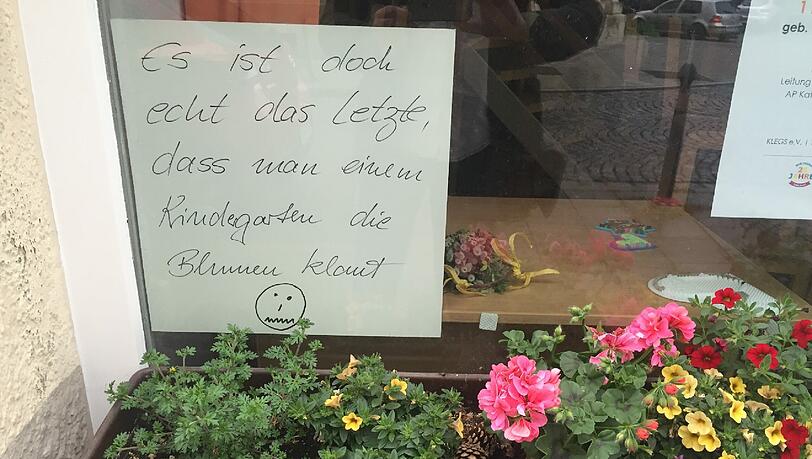 Es ist doch
echt das Letzte,
dass man einem
Kindergarten die
Blumen klaut
1
geb.
Leitung
AP Kat
KLEGS e.V. |
JAHRE